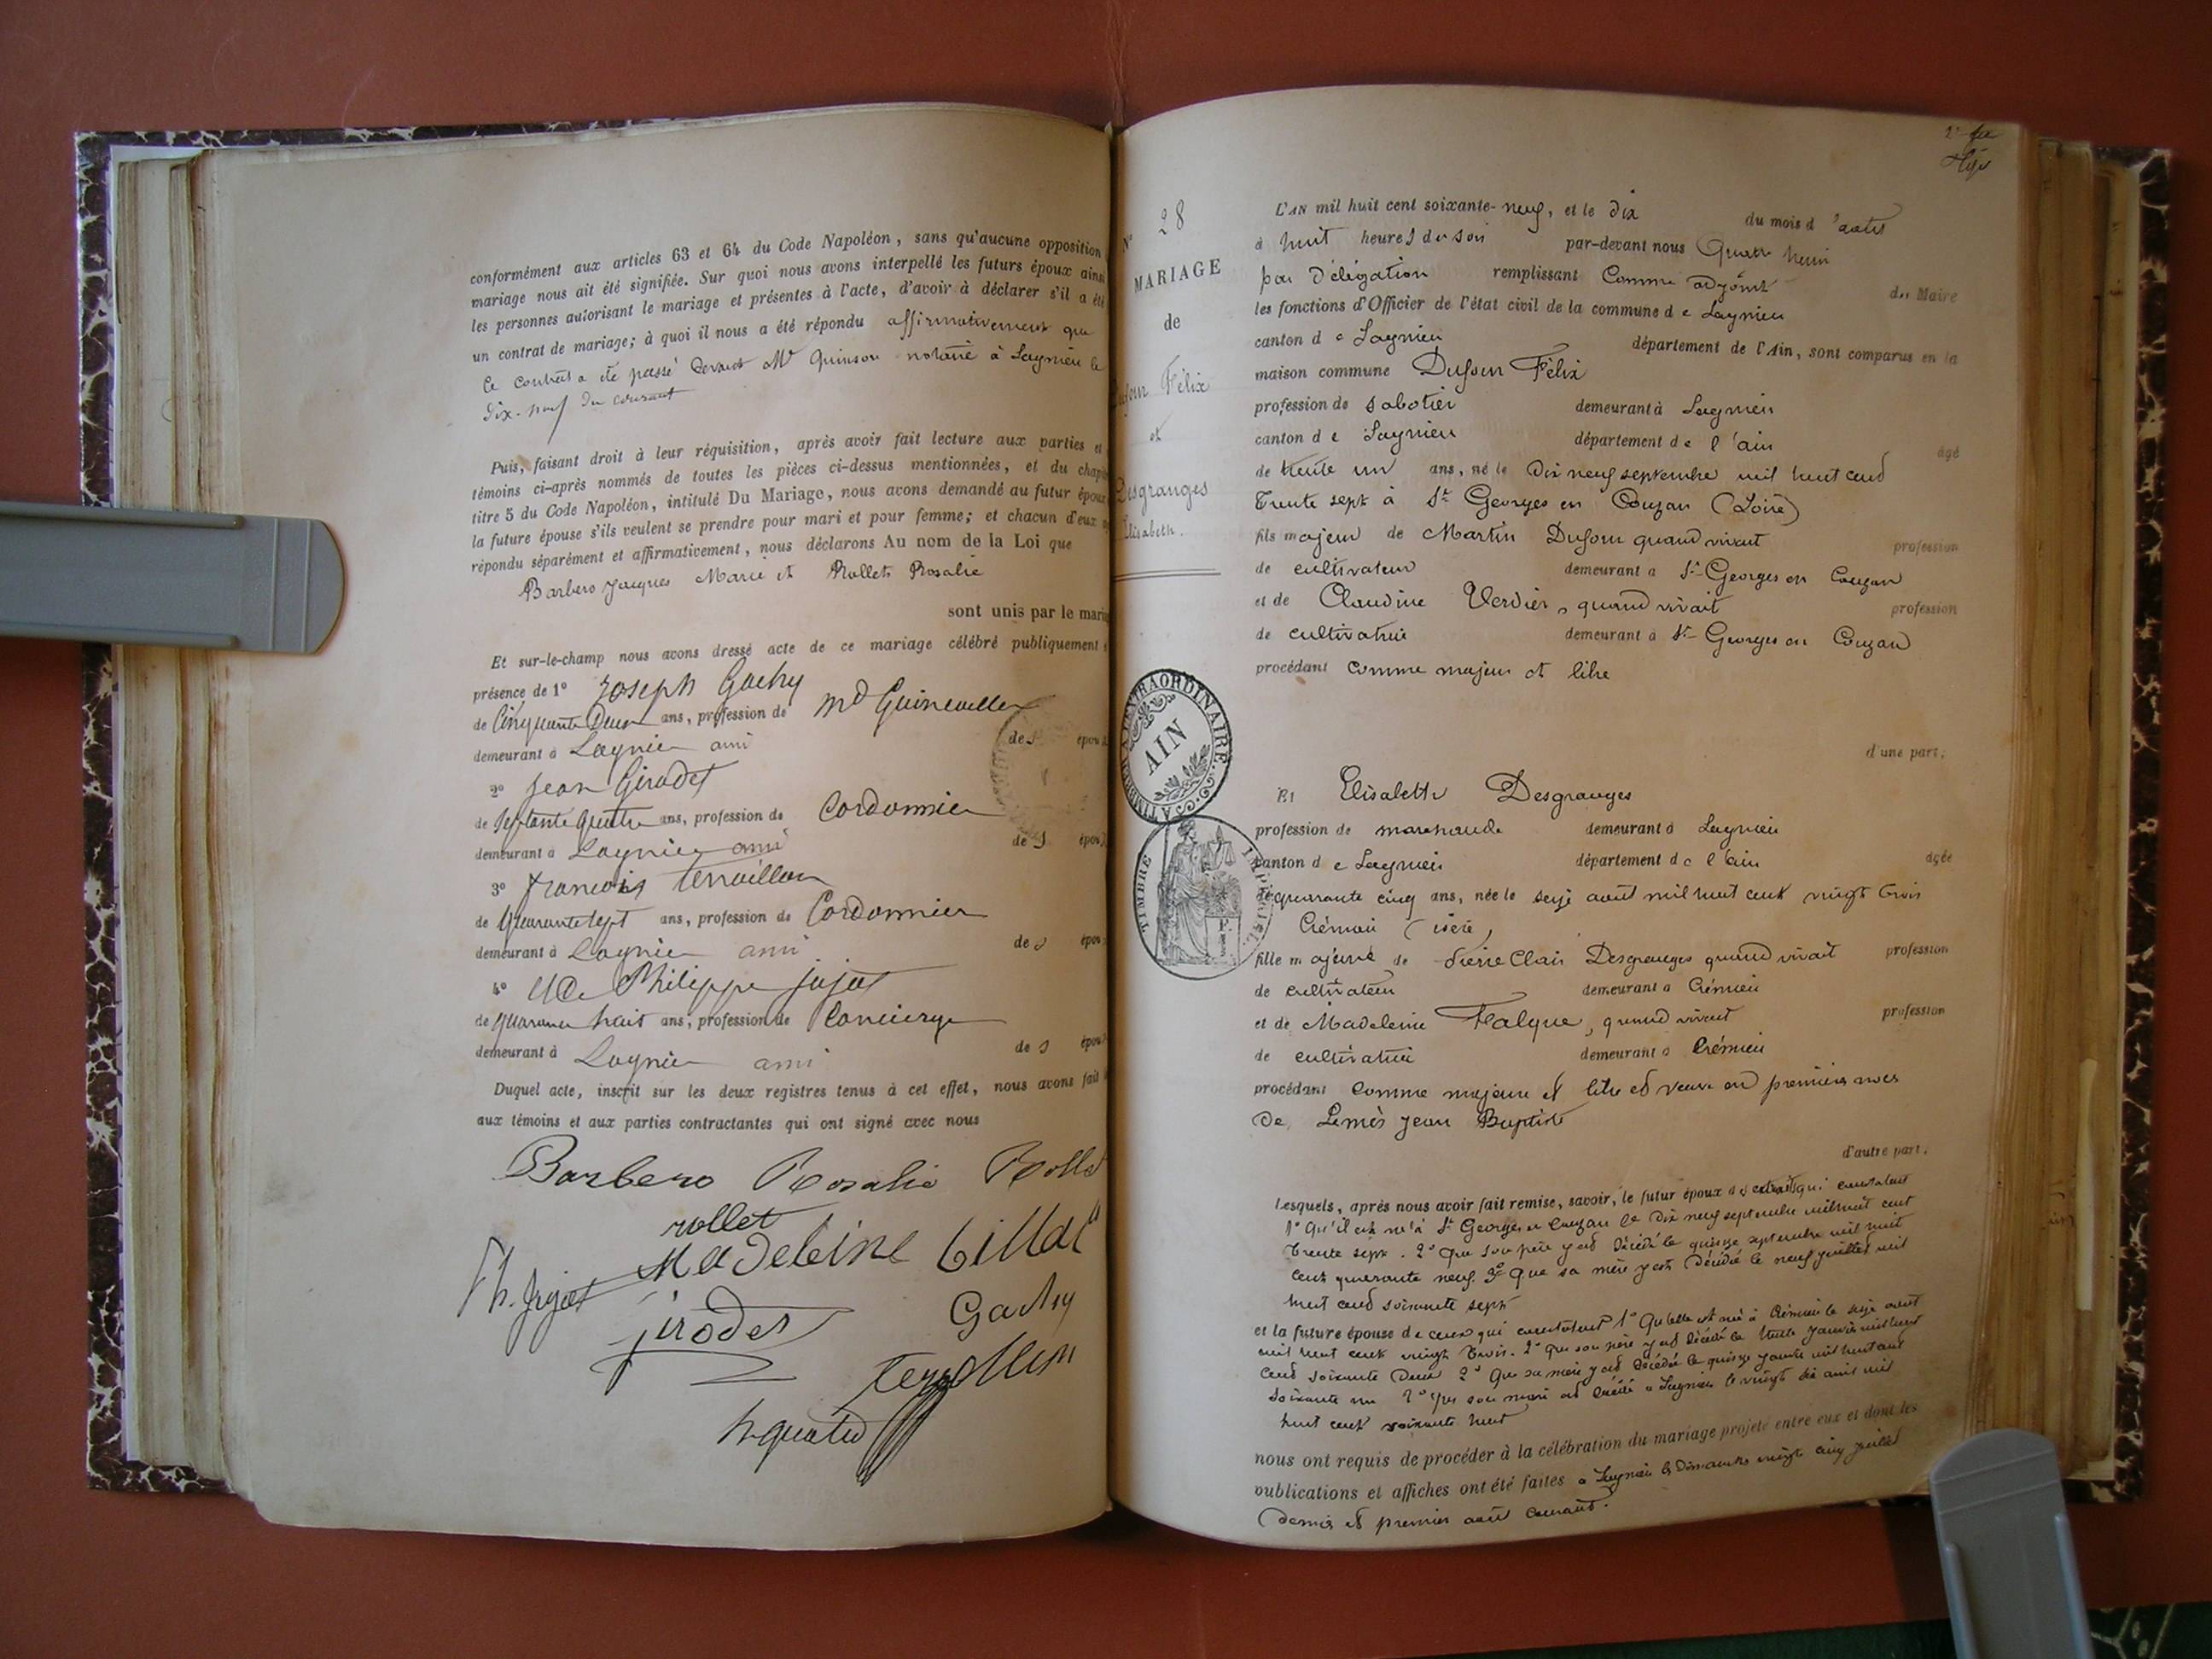 conformément aux articles 63 et 64 du Code Napoléon, sans qu'aucune opposition
mariage nous ait été signifiée. Sur quoi nous avons interpellé les futurs époux ainsi
les personnes autorisant le mariage et présentes à l'acte, d'avoir à déclarer s'il a été
un contrat de mariage; à quoi il nous a été répondu affirmativement que
le contrat a été passé devant Me Quinson notaire à Lagnieu le
dix-neuf du courant
Puis, faisant droit à leur réquisition, après avoir fait lecture aux parties et
témoins ci-après nommés de toutes les pièces ci-dessus mentionnées, et du
titre 5 du Code Napoléon, intitulé Du Mariage, nous avons demandé au futur époux
la future épouse s'ils veulent se prendre pour mari et pour femme; et chacun d'eux
répondu séparément et affirmativement, nous déclarons Au nom de la Loi que
Barbero Jacques Marie et Rollet Rosalie
sont unis par le
Et sur-le-champ nous avons dressé acte de ce mariage célébré publiquement
présence de 1° Joseph Gachy
de Cinquante Deux ans, profession de md
demeurant à Lagnieu ami des
2° Jean Girodet
de Septante quatre ans, profession de Cordonnier
demeurant à Lagnieu ami des
3° François
de Quarante Sept ans, profession de Cordonnier
demeurant à Lagnieu ami des
4° Philippe Jujat
de quarante huit ans, profession de Concierge
demeurant à Lagnieu ami des
Duquel acte, inscrit sur les deux registres tenus à cet effet, nous avons fait
aux témoins et aux parties contractantes qui ont signé avec nous
Barbero Rosalie
rollet
Madeleine
Ph. Jujat
jirodet
Gachy
N° 28
MARIAGE
de
Félix
et
Desgranges
Elisabeth.
TIMBRE EXTRAORDINAIRE
AIN
TIMBRE IMPÉRIAL
L'AN mil huit cent soixante-neuf, et le dix du mois d'août
à huit heures du soir par-devant nous
par délégation remplissant Comme adjoint du Maire
les fonctions d'Officier de l'état civil de la commune de Lagnieu
canton de Lagnieu département de l'Ain, sont comparus en la
maison commune Dufour Félix
profession de sabotier demeurant à Lagnieu
canton de Lagnieu département de l'ain âgé
de trente un ans, né le dix neuf septembre mil huit cent
Trente sept à St Georges en Couzan (Loire)
fils majeur de Martin Dufour quand vivait profession
de cultivateur demeurant à St Georges en Couzan
et de Claudine Verdier, quand vivait profession
de cultivatrice demeurant à St Georges en Couzan
procédant comme majeur et libre
d'une part;
Et Elisabeth Desgranges
profession de marchande demeurant à Lagnieu
canton de Lagnieu département de l'ain âgée
de quarante cinq ans, née le seize août mil huit cent vingt trois
Crémieu (isère)
fille majeure de Pierre Clair Desgranges quand vivait profession
de cultivateur demeurant à Crémieu
et de Madeleine Falque, quand vivait profession
de cultivatrice demeurant à Crémieu
procédant comme majeure et libre et veuve en premières noces
de Jean Baptiste
d'autre part.
Lesquels, après nous avoir fait remise, savoir, le futur époux des extraits qui constatent
1° Qu'il est né à St Georges en Couzan le dix neuf septembre mil huit cent
trente sept. 2° Que son père y est décédé le quinze septembre mil huit
cent quarante neuf. 3° Que sa mère y est décédée le neuf juillet mil
huit cent soixante sept
et la future épouse de ceux qui constatent 1° Qu'elle est née à Crémieu le seize août
mil huit cent vingt trois. 2° Que son père y est décédé le trente janvier mil huit
cent soixante deux 2° Que sa mère y est décédée le quinze mil huit cent
soixante un Que son mari est décédé à Lagnieu le vingt six avril mil
huit cent soixante huit
nous ont requis de procéder à la célébration du mariage projeté entre eux et dont les
publications et affiches ont été faites à Lagnieu les dimanches vingt cinq juillet
dernier et premier août courant.